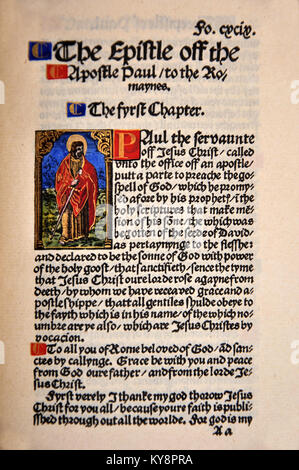 Fo. cxcix.
The Epistle off the
Apostle Paul/to the Ro-
maynes.
The fyrst Chapter.
PAul the servaunte
off Jesus Christ/called
vnto the office off an apostle/
putt a parte to preache the go-
spell of God/which he promy-
sed afore by his prophetſ/ i the
holy scriptures that make mē-
sion of his sōne/the which was
begotten of the seede of David/
as pertaynynge to the flesshe:
and declared to be the sonne of God with power
of the holy goost/that sanctifieth/sence the tyme
that Jesus Christ oure lorde rose agayne from
deeth/by whom we have receaved grace and a-
postleshippe/that all gentiles shulde obeye to
the fayth which is in his name/of the which no-
umbre are ye also/which are Jesus Christes by
vocacion.
To all you of Rome beloved of God/ād sāin-
ctes by callynge. Grace be with you and peace
from God oure father/and from the lorde Je-
sus Christ.
Fyrst verely I thanke my god thorow Jesus
Christ for you all/because youre faith is publi-
sshed through out all the worlde. For god is my
A a
alamy
Image ID: KY8PRA
www.alamy.com